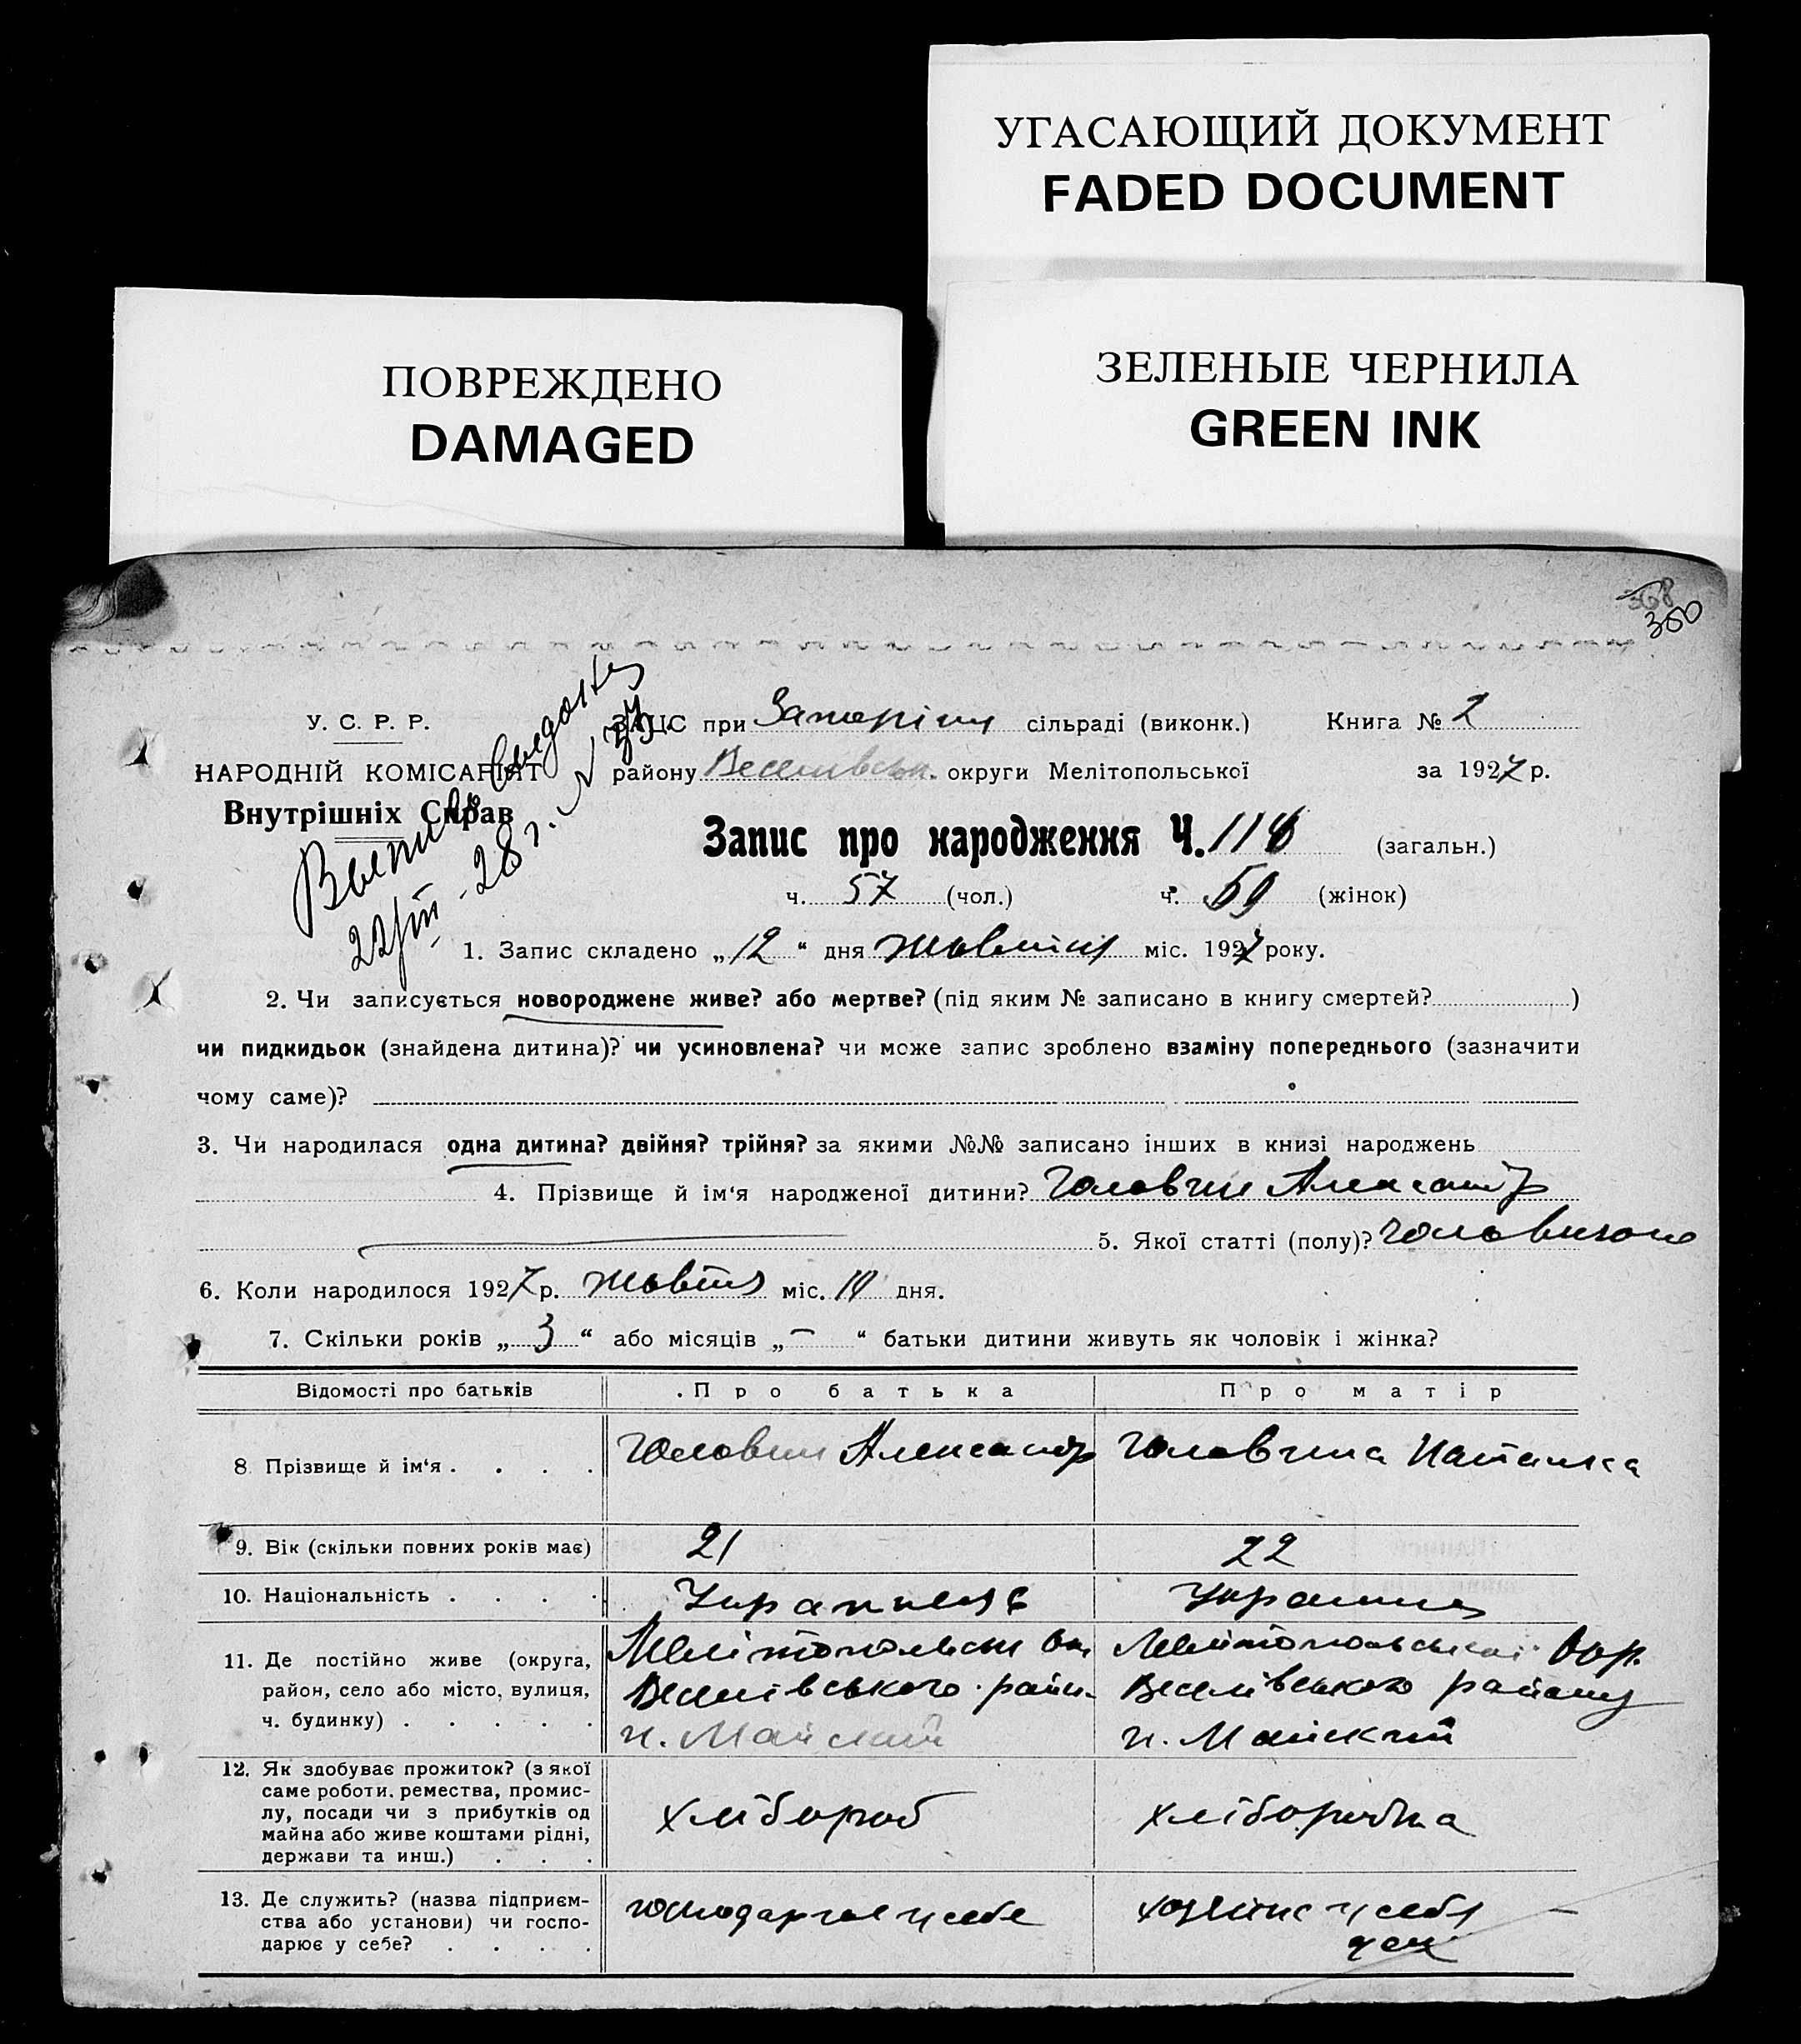 УГАСАЮЩИЙ ДОКУМЕНТ
FADED DOCUMENT
ПОВРЕЖДЕНО
DAMAGED
ЗЕЛЕНЫЕ ЧЕРНИЛА
GREEN INK
368
350
У. С. Р. Р.
НАРОДНІЙ КОМІСАРІЯТ
Внутрішніх Справ
22/III-28 г. №
ЗАГС при сільраді (виконк.) Книга № 2
району Веселівськ. округи Мелітопольської за 1927 р.
Запис про народження Ч. 116 (загальн.)
ч. 57 (чол.) ч. 59 (жінок)
1. Запис складено „12“ дня Жовтня міс. 1927 року.
2. Чи записується новороджене живе? або мертве? (під яким № записано в книгу смертей? )
чи пидкидьок (знайдена дитина)? чи усиновлена? чи може запис зроблено взаміну попереднього (зазначити
чому саме)?
3. Чи народилася одна дитина? двійня? трійня? за якими №№ записано інших в книзі народжень
4. Прізвище й ім‘я народженої дитини? Головин Александр
5. Якої статті (полу)?
6. Коли народилося 1927 р. Жовтня міс. 10 дня.
7. Скільки років „3“ або місяців „–“ батьки дитини живуть як чоловік і жінка?
Відомості про батьків Про батька Про матір
8 Прізвище й ім‘я . . . . Головин Александр Головина Наталка
9. Вік (скільки повних років має) 21 22
10. Національність . . . .
11. Де постійно живе (округа, район, село або місто, вулиця, ч. будинку) . . . . .
Мелітопольськ Ок Мелітопольської Окр.
Веселівського район. Веселівського району
п. Майский п. Майский
12. Як здобуває прожиток? (з якої
саме роботи, ремества, промис-
лу, посади чи з прибутків од
майна або живе коштами рідні,
держави та инш.) . . .
хлібороб хліборобка
13. Де служить? (назва підприєм-
ства або установи) чи госпо-
дарює у себе? . . . .
господарює у себе